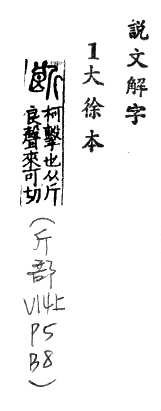 説文解字
1大徐本
柯擊也从斤
良聲來可切
(斤部
V14上
P5
B8)